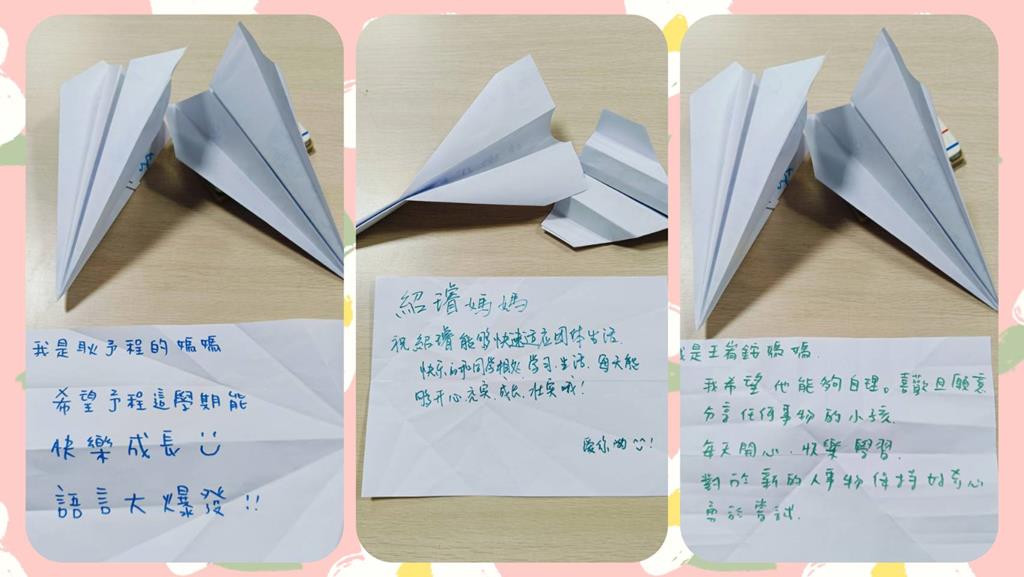 我是耿予程的媽媽
希望予程這學期能
快樂成長
語言大爆發!!
紹璿媽媽
祝紹璿能够快速适应团体生活.
快乐的和同学相处.学习.生活.每天能
够开心.充实.成长.壮实哦!
爱你呦!
我是王嵛鋐媽媽.
我希望他能夠自理。喜歡且願意
分享任何事物的小孩.
每天開心.快樂學習.
對於新的人事物保持好奇心
勇於嘗試.